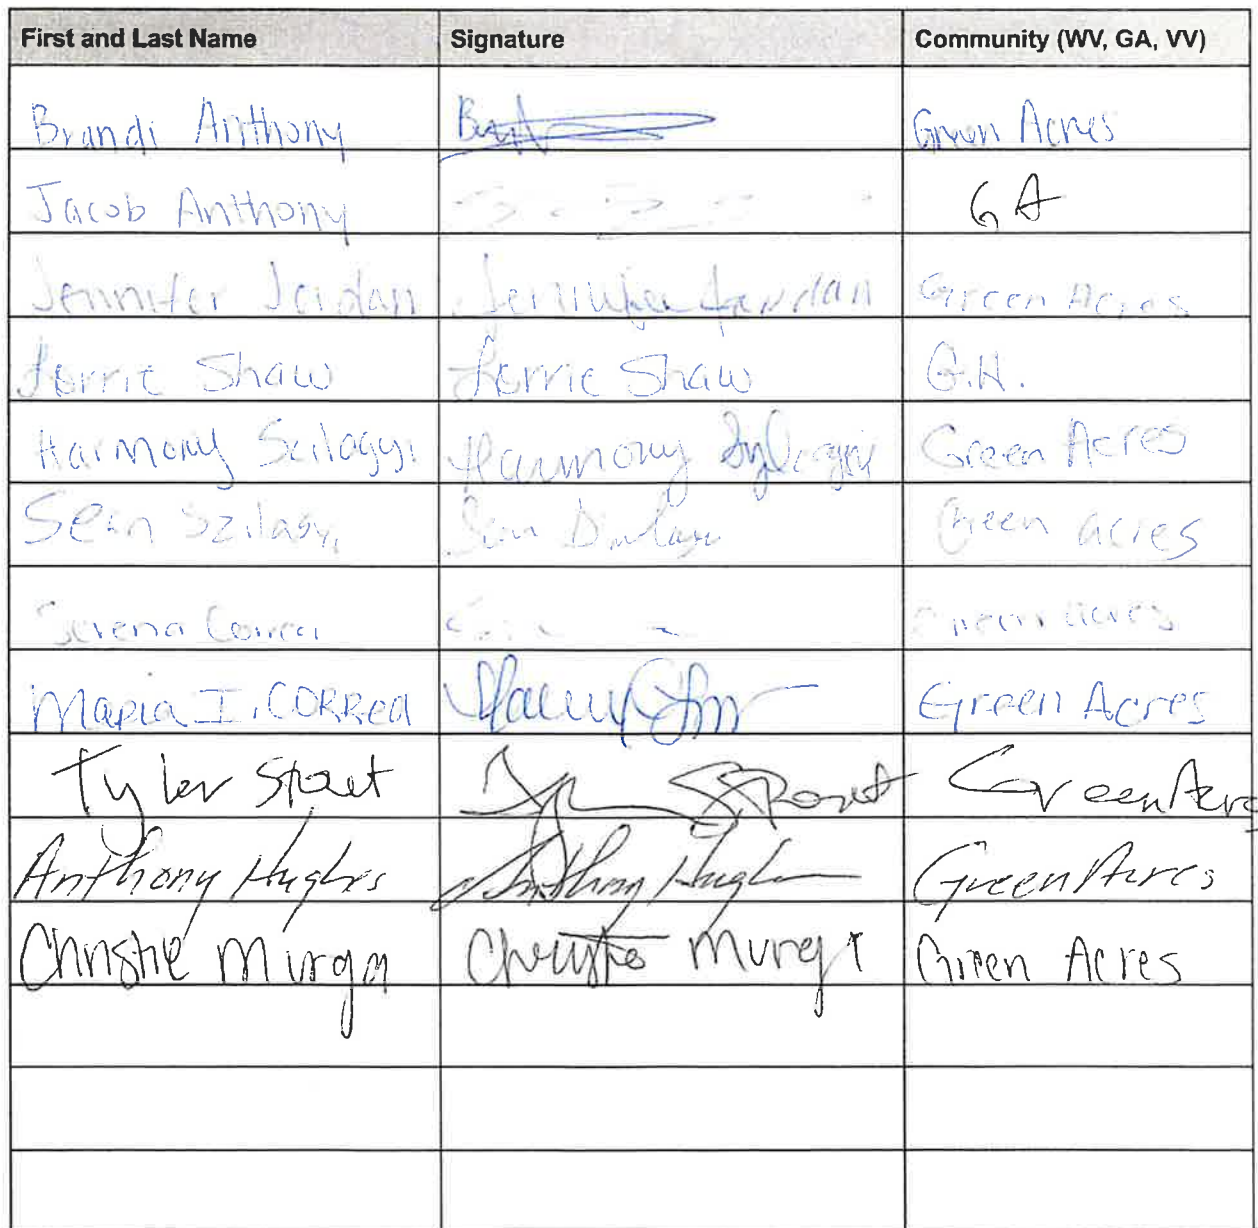 First and Last Name Signature Community (WV, GA, VV)
Brandi Anthony Green Acres
Jacob Anthony GA
Jennifer Jordan Jennifer Jordan Green Acres
Lorrie Shaw Lorrie Shaw G.A.
Harmony Szilagyi Harmony Szilagyi Green Acres
Sean Szilagyi Sean Green acres
Serena Correa Green acres
Maria I. CORREA Green Acres
Tyler Green Acres
Anthony Hughes Anthony Hughes Green Acres
Christie Green Acres